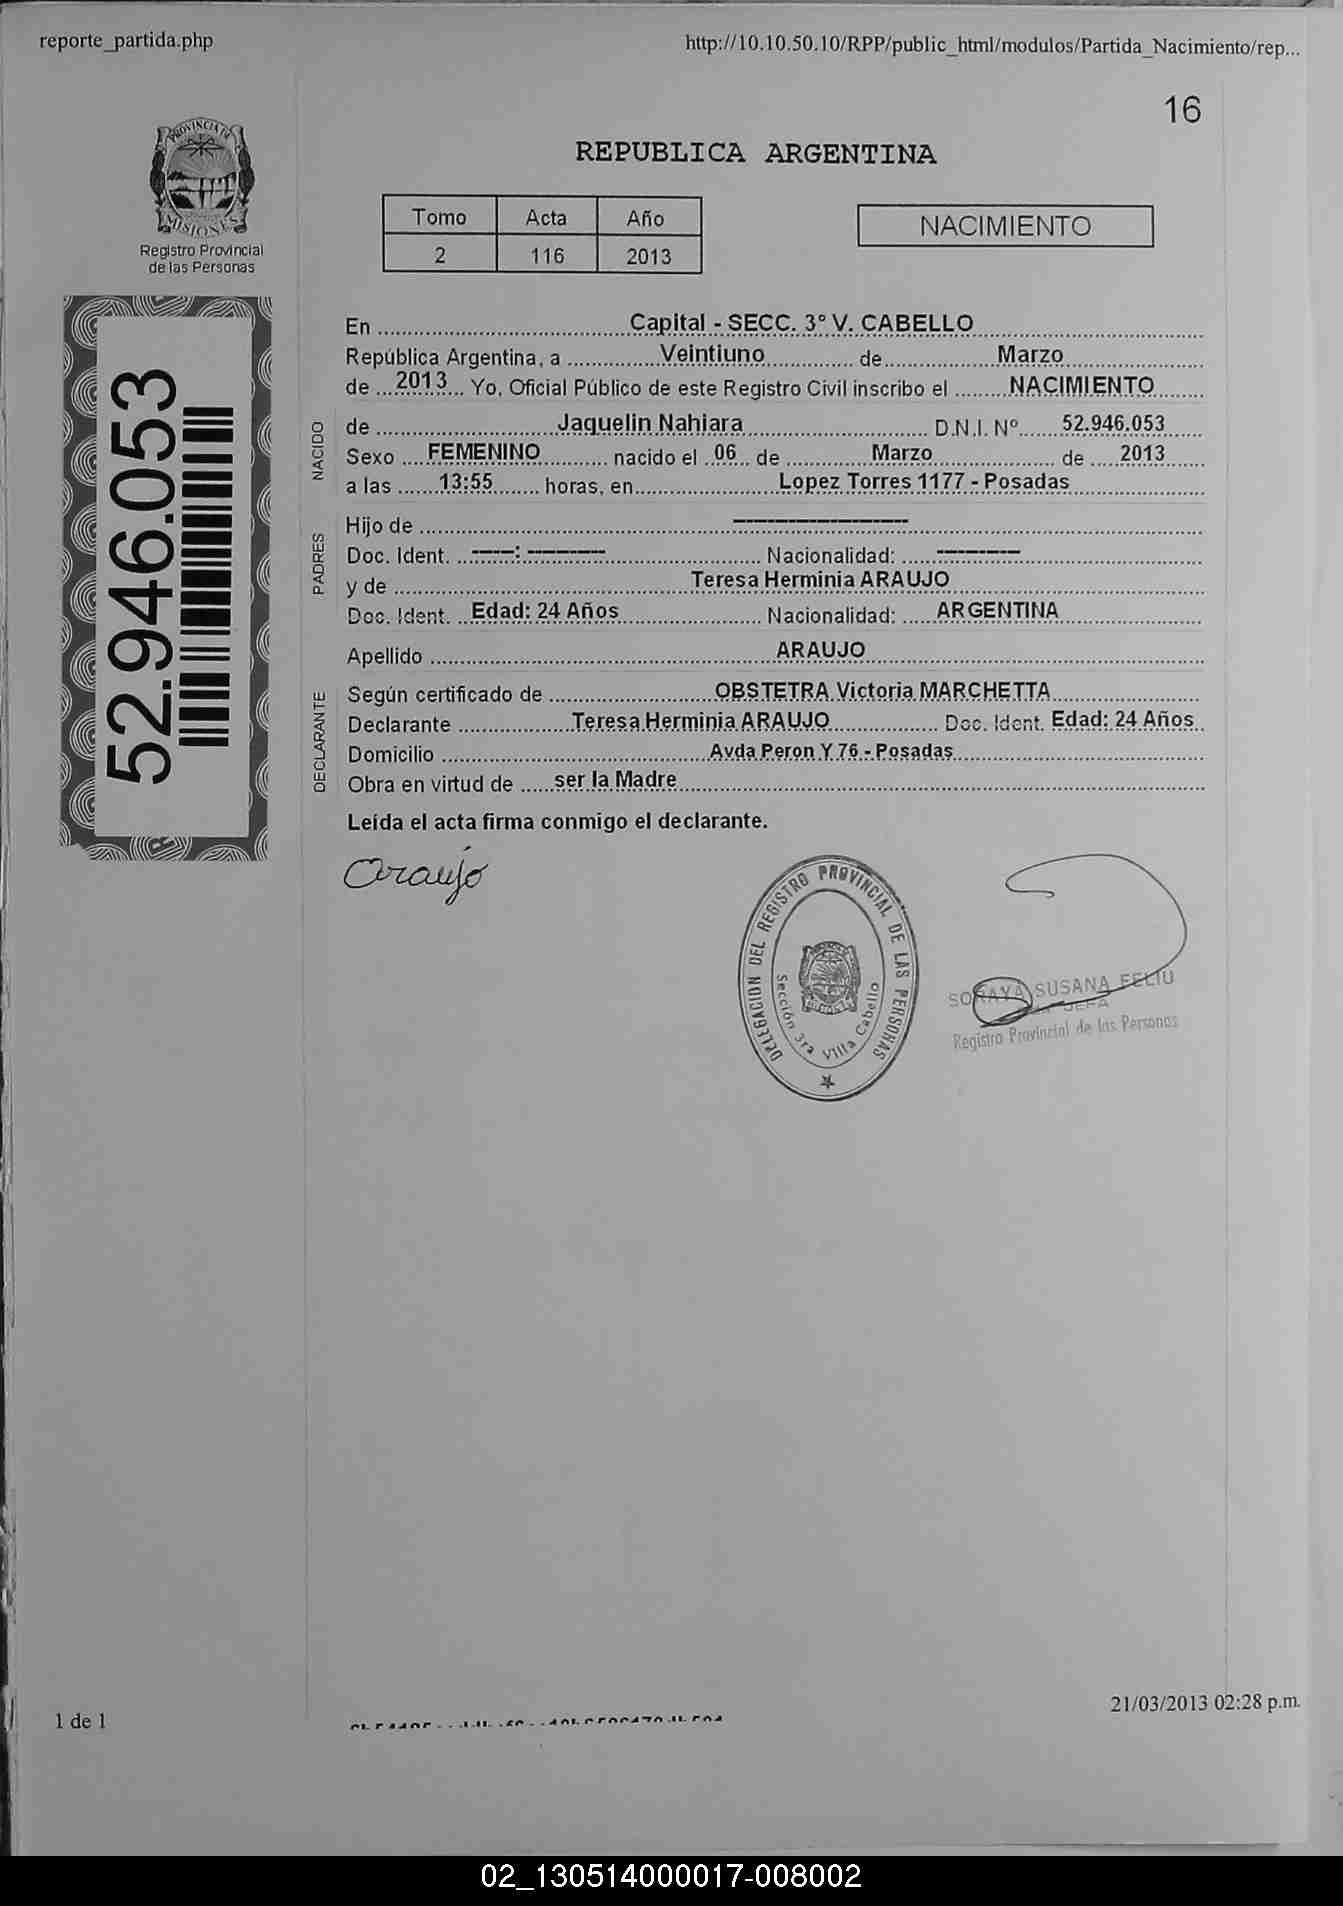 reporte_partida.php
http://10.10.50.10/RPP/public_html/modulos/Partida_Nacimiento/rep...
16
PROVINCIA DE
MISIONES
Registro Provincial
de las Personas
REPUBLICA ARGENTINA
Tomo Acta Año
2 116 2013
NACIMIENTO
52.946.053
En Capital - SECC. 3° V. CABELLO
República Argentina, a Veintiuno de Marzo
de 2013 Yo, Oficial Público de este Registro Civil inscribo el NACIMIENTO
NACIDO
de Jaquelin Nahiara D.N.I. Nº 52.946.053
Sexo FEMENINO nacido el 06 de Marzo de 2013
a las 13:55 horas, en Lopez Torres 1177 - Posadas
PADRES
Hijo de ---------------------
Doc. Ident. -----: --------- Nacionalidad: ----------
y de Teresa Herminia ARAUJO
Doc. Ident. Edad: 24 Años Nacionalidad: ARGENTINA
Apellido ARAUJO
DECLARANTE
Según certificado de OBSTETRA Victoria MARCHETTA
Declarante Teresa Herminia ARAUJO Doc. Ident. Edad: 24 Años
Domicilio Avda Peron Y 76 - Posadas
Obra en virtud de ser la Madre
Leída el acta firma conmigo el declarante.
Araujo
DELEGACION DEL REGISTRO PROVINCIAL DE LAS PERSONAS
Sección 3ra Villa Cabello
SORAYA SUSANA FELIU
JEFA
Registro Provincial de las Personas
1 de 1
21/03/2013 02:28 p.m.
02_130514000017-008002